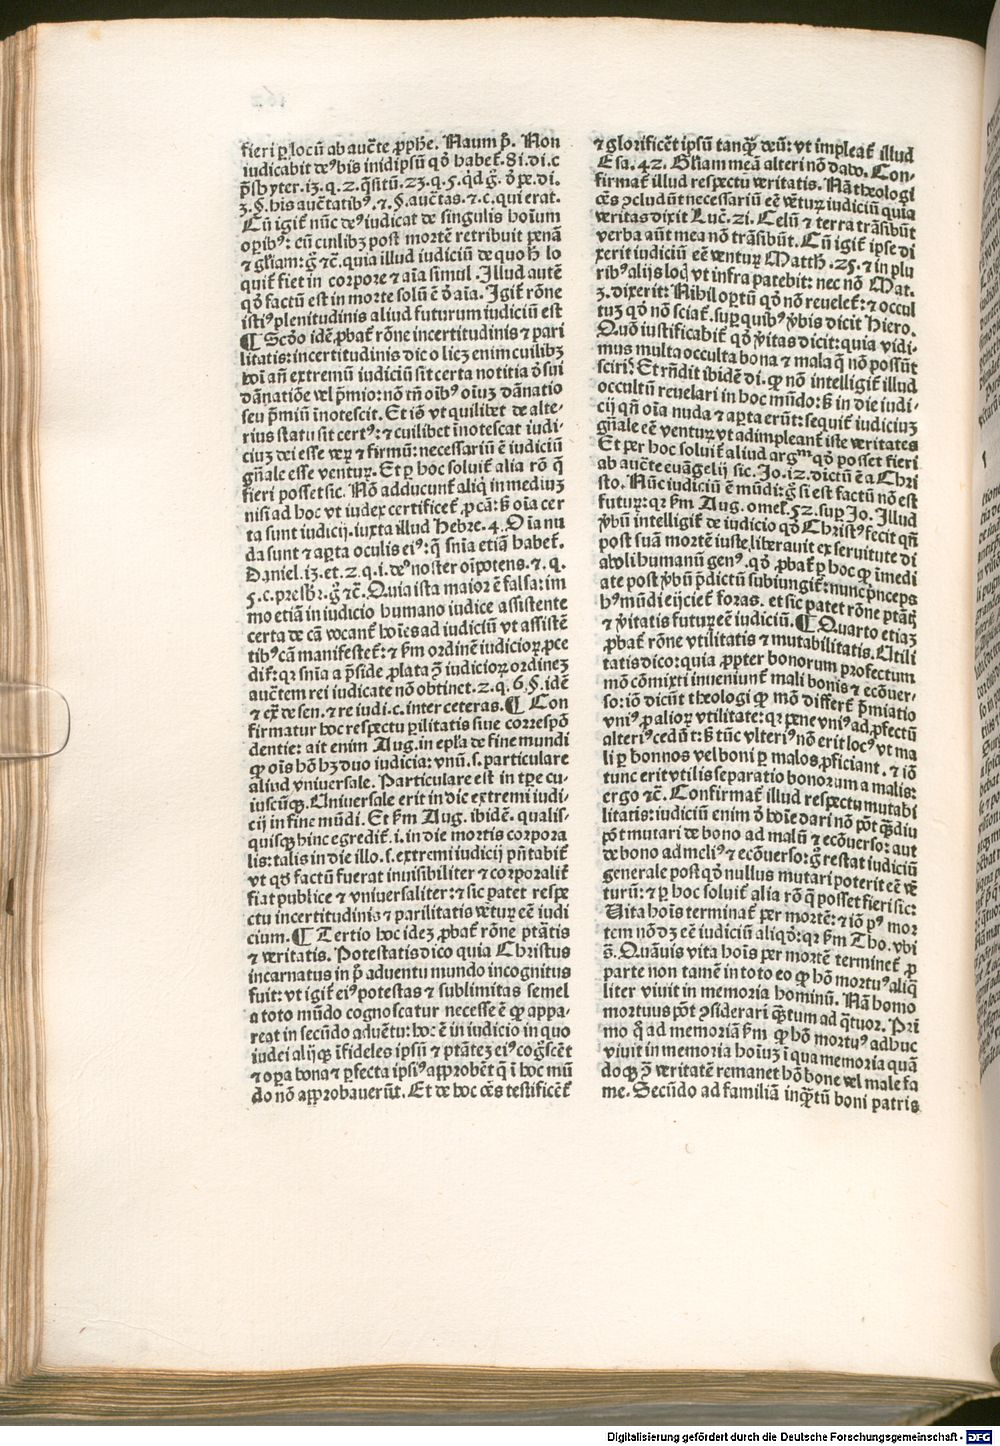 fieri ꝑ locū ab auc̄te ꝓph̄e. Naum p̄. Non
iudicabit deꝰ bis inidipsū qđ habet᷑. 8i. di. c
p̄sbyter. i3. q. 2. q̄sitū. 23. q. 5. qd g̈. ō pe. di.
3. §. his auc̄tatibꝰ. ⁊. §. auc̄tas. ⁊. c. qui erat.
Cū igit᷑ nūc deꝰ iudicat de singulis hoīum
oꝑibꝰ: cū cuilibꝫ post mortē retribuit penā
⁊ gl̄iam: g̈ ⁊c̄. quia illud iudiciū de quo h̄ lo
quit᷑ fiet in corpore ⁊ aīa simul. Illud autē
qđ factū est in morte solū ē ō aīa. Igit᷑ rōne
istiꝰ plenitudinis aliud futurum iudiciū est
¶ Scđo idē ꝓbat᷑ rōne incertitudinis ⁊ pari
litatis: incertitudinis dico licꝫ enim cuilibꝫ
hoī añ extremū iudiciū sit certa notitia ō sui
dānatiōe vel p̄mio: nō tñ oībꝰ oīuꝫ dānatio
seu p̄miū īnotescit. Et iō vt quilibet de alte-
rius statu sit certꝰ: ⁊ cuilibet īnotescat iudi-
ciuꝫ dei esse veꝝ ⁊ firmū: necessariū ē iudiciū
gñale esse ventuꝝ. Et ꝑ hoc soluit᷑ alia rō q̄
fieri posset sic. Nō adducunt᷑ aliq̄ in mediuꝫ
nisi ad hoc vt iudex certificet᷑ ꝓ cā: s̄ oīa cer
ta sunt iudicij. iuxta illud Hebre. 4. Oīa nu
da sunt ⁊ aꝑta oculis eiꝰ: q̄ snīa etiā habet᷑.
Daniel. i3. et. 2. q. i. deꝰ noster oīpotens. ⁊. q.
5. c. presbr̄. g̈ ⁊c̄. Quia ista maior ē falsa: im
mo etiā in iudicio humano iudice assistente
certa de cā vocant᷑ hoīes ad iudiciū vt assistē
tibꝰ cā manifestet᷑: ⁊ ẜm ordinē iudicioꝝ ꝓce
dit᷑: qꝛ snīa a p̄side ꝓlata ꝯ̄ iudicioꝝ ordineꝫ
auc̄tem rei iudicate nō obtinet. 2. q. 6. §. idē
⁊ ex̄ de sen. ⁊ re iudi. c. inter ceteras. ¶ Con
firmatur hoc respectu ꝑilitatis siue correspō
dentie: ait enim Aug. in epl̄a de fine mundi
ꝙ oīs hō hꝫ duo iudicia: vnū. s. particulare
aliud vniuersale. Particulare est in tꝑe cu-
iuscūqꝫ. Uniuersale erit in die extremi iudi-
cij in fine mūdi. Et ẜm Aug. ibidē. qualis-
quisqꝫ hinc egredit᷑. i. in die mortis corpora
lis: talis in die illo. s. extremi iudicij pñtabit᷑
vt qđ factū fuerat inuisibiliter ⁊ corporalit᷑
fiat publice ⁊ vniuersaliter: ⁊ sic patet respe
ctu incertitudinis ⁊ parilitatis vētuꝝ eē iudi
cium. ¶ Tertio hoc ideꝫ ꝓbat᷑ rōne ptātis
⁊ veritatis. Potestatis dico quia Christus
incarnatus in p̄ aduentu mundo incognitus
fuit: vt igit᷑ eiꝰ potestas ⁊ sublimitas semel
a toto mūdo cognoscatur necesse ē ꝙ appa-
reat in secūdo aduētu: hoc ē in iudicio in quo
iudei alijqꝫ īfideles ipsū ⁊ ptāteꝫ eiꝰ cog̊scēt
⁊ oꝑa bona ⁊ ꝑfecta ipsiꝰ approbēt q̄ ī hoc mū
do nō approbauerūt. Et de hoc oēs testificēt᷑
⁊ glorificēt ipsū tanqꝫ deū: vt impleat᷑ illud
Esa. 42. Gl̄iam meā alteri nō dabo. Con-
firmat᷑ illud respectu veritatis. Nā theologi
oēs ꝯcludūt necessariū eē vētuꝝ iudiciū quia
veritas dixit Luc̄. 2i. Celū ⁊ terra trāsibūt
verba aūt mea nō trāsibūt. Cū igit᷑ ipse di
xerit iudiciū eē ventuꝝ Matth̄. 25. ⁊ in plu
ribꝰ alijs loq̄ vt infra patebit: nec nō Mat.
3. dixerit: Nihil oꝑtū qđ nō reuelet᷑: ⁊ occul
tuꝫ qđ nō sciat᷑. suꝑ quibꝰ v̄bis dicit Hiero.
Quō iustificabit᷑ qđ v̄itas dicit: quia vidi-
mus multa occulta bona ⁊ mala q̄ nō possūt
sciri: Et rñdit ibidē di. ꝙ nō intelligit᷑ illud
occultū reuelari in hoc mūdo: s̄ in die iudi-
cij qñ oīa nuda ⁊ aꝑta erūt: sequit᷑ iudiciuꝫ
gñale eē ventuꝝ vt adimpleant᷑ iste veritates
Et per hoc soluit᷑ aliud argᵐ qđ posset fieri
ab auc̄te euāgelij sic. Jo. i2. dictū ē a Chri
sto. Nūc iudiciū ē mūdi: g̈ si est factū nō est
futuꝝ: qꝛ ẜm Aug. omel. 52. suꝑ Jo. Illud
v̄bū intelligit᷑ de iudicio qđ Christꝰ fecit qñ
post suā mortē iuste liberauit ex seruitute di
aboli humanū genꝰ. qđ ꝓbat᷑ ꝑ hoc ꝙ īmedi
ate post v̄bū p̄dictū subiungit᷑: nunc p̄nceps
hꝰ mūdi eijciet᷑ foras. et sic patet rōne ptātꝫ
⁊ v̄itatis futuꝝ eē iudiciū. ¶ Quarto etiaꝫ
ꝓbat᷑ rōne vtilitatis ⁊ mutabilitatis. Utili
tatis dico: quia ꝓpter bonorum profectum
mō cōmixti inueniunt᷑ mali bonis ⁊ ecōuer-
so: iō dicūt theologi ꝙ mō differt᷑ p̄miatio
vniꝰ ꝓ alioꝝ vtilitate: qꝛ pene vniꝰ ad ꝓfectū
alteriꝰ cedūt: s̄ tūc vlteriꝰ nō erit locꝰ vt ma
li ꝑ bonnos vel boni ꝑ malos ꝓficiant. ⁊ iō
tunc erit vtilis separatio bonorum a malis:
ergo ⁊c̄. Confirmat᷑ illud respectu mutabi
litatis: iudiciū enim ō hoīe dari nō pōt q̄diu
pōt mutari de bono ad malū ⁊ ecōuerso: aut
de bono ad meliꝰ ⁊ ecōuerso: g̈ restat iudiciū
generale post qđ nullus mutari poterit eē vē
turū: ⁊ ꝑ hoc soluit᷑ alia rō q̄ posset fieri sic:
Uita hoīs terminat᷑ per mortē: ⁊ iō pꝰ mor
tem nō dꝫ eē iudiciū aliqđ: qꝛ ẜm Tho. vbi
s̄. Quāuis vita hoīs per mortē terminet᷑ ꝓ
parte non tamē in toto eo ꝙ hō mortuꝰ aliq̄
liter viuit in memoria hominū. Nā homo
mortuus pōt ꝯsiderari q̄tum ad q̄tuor. Pri
mo q̄ ad memoriā ẜm ꝙ hō mortuꝰ adhuc
viuit in memoria hoīuꝫ ī qua memoria quā
doqꝫ ꝯ̄ veritatē remanet hō bone vel male fa
me. Secūdo ad familiā inq̄tū boni patris
Digitalisierung gefördert durch die Deutsche Forschungsgemeinschaft - DFG